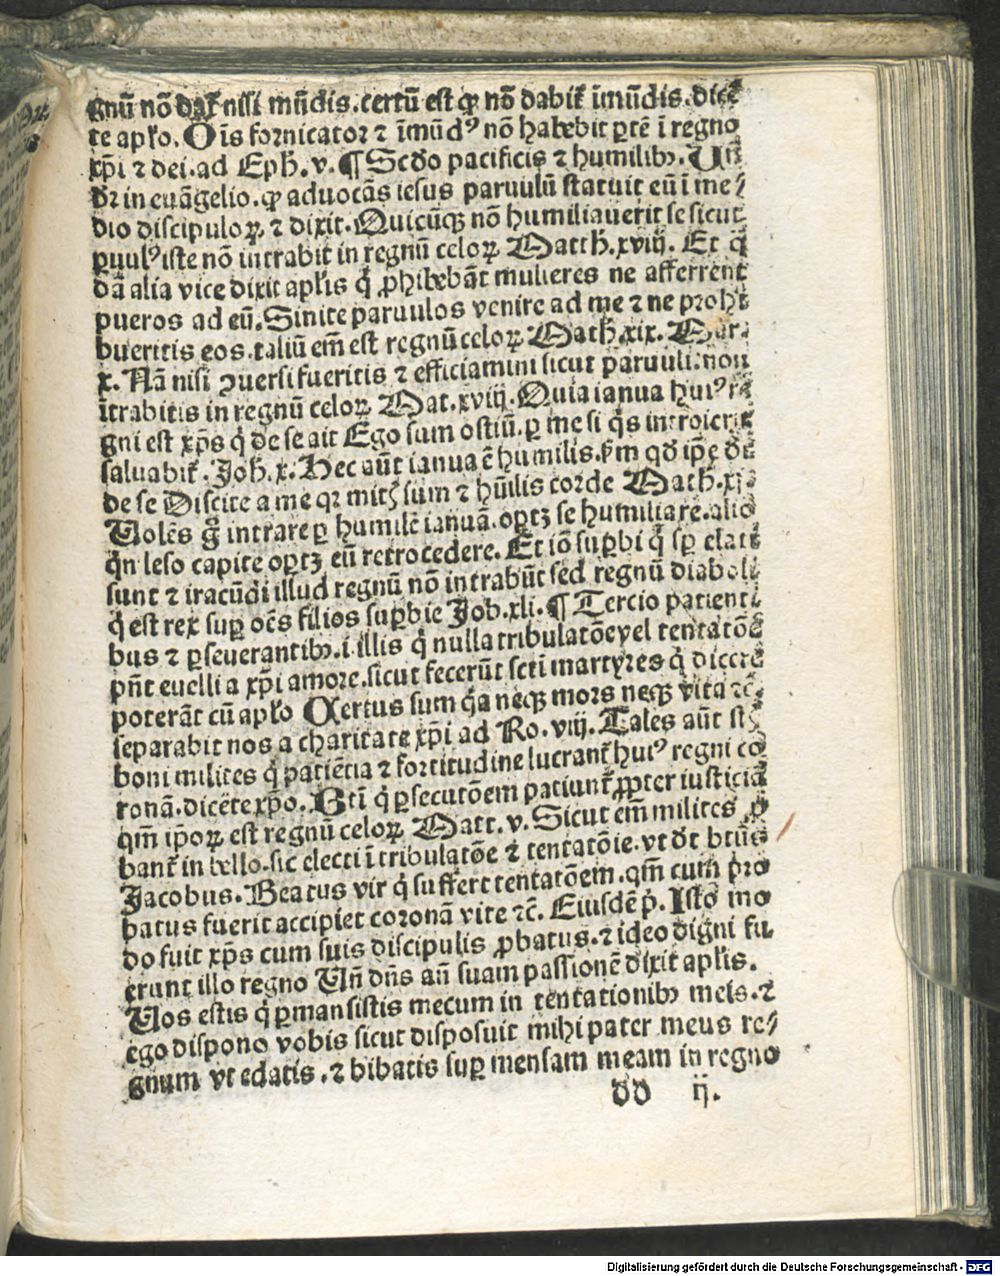 gnū nō dat᷑ nisi mūdis.certū est qꝛ nō dabit᷑ īmūdis.dicē
te apl'o. Oīs fornicatoꝛ ⁊ īmūdꝰ nō habebit ꝑtē ī regno
xp̄i ⁊ dei.ad Eph̄.v.¶ Scd̄o pacificis ⁊ humilibꝫ. Un̄
dꝛ in euāgelio.qꝛ aduocās iesus paruulū statuit eū ī me⸗
dio discipuloꝝ ⁊ dixit. Quicūqꝫ nō humiliauerit se sicut
ꝑuulꝰ iste nō intrabit in regnū celoꝝ Matth̄.xviij. Et q̄
dā alia vice dixit apl'is q̇ ꝓhibebāt mulieres ne afferrent
pueros ad eū. Sinite paruulos venire ad me ⁊ ne prohi
bueritis eos.taliū em̄ est regnū celoꝝ Math̄.xix. Mar.
x. Nā nisi ꝯuersi fueritis ⁊ efficiamini sicut paruuli.non
ītrabitis in regnū celoꝝ Mat.xviij. Quia ianua huiꝰ re
gni est xp̄s q̇ de se ait Ego sum ostiū.ꝑ me si q̇s introierit
saluabit᷑. Joh̄.x. Hec aūt ianua ē humilis.ẜm qd̓ ip̄e dt̄
de se Discite a me qꝛ mitꝭ sum ⁊ hūilis corde Math̄.xj.
Uolēs g̊ intrare ꝑ humilē ianuā.oꝑtꝫ se humiliare.alio
qn̄ leso capite oꝑtꝫ eū retrocedere. Et iō suꝑbi q̇ sꝑ elati
sunt ⁊ iracūdi illud regnū nō intrabūt sed regnū diaboli
q̇ est rex suꝑ oēs filios suꝑbie Job.xli.¶ Tercio patienti
bus ⁊ ꝑseuerantibꝫ.i.illis q̇ nulla tribulatōe vel tentatōe
pn̄t euelli a xp̄i amore.sicut fecerūt scti martyres q̇ dicere
poterāt cū apl'o Certus sum qa neqꝫ mors neqꝫ vita ⁊c̄.
separabit nos a charitate xp̄i ad Ro.viij. Tales aūt st̄
boni milites q̇ patiētia ⁊ fortitudine lucrant᷑ huiꝰ regni co
ronā.dicēte xp̄o. Bt̄i q̇ ꝑsecutōem patiunt᷑ ꝓpter iusticiā
qm̄ ip̄oꝝ est regnū celoꝝ Matt.v. Sicut em̄ milites ꝓ
bant᷑ in bello.sic electi ī tribulatōe ⁊ tentatōie.vt dt̄ btūs
Jacobus. Beatus vir q̇ suffert tentatōem.qm̄ cum pro
batus fuerit accipiet coronā vite ⁊c̄. Eiusdē p̊. Isto mo
do fuit xp̄s cum suis discipulis ꝓbatus.⁊ ideo digni fu
erunt illo regno Un̄ dn̄s an̄ suam passionē dixit apl'is.
Uos estis q̇ ꝑmansistis mecum in tentationibꝫ meis.⁊
ego dispono vobis sicut disposuit mihi pater meus re⸗
gnum vt edatis.⁊ bibatis suꝑ mensam meam in regno
dd ij.
Digitalisierung gefördert durch die Deutsche Forschungsgemeinschaft - DFG